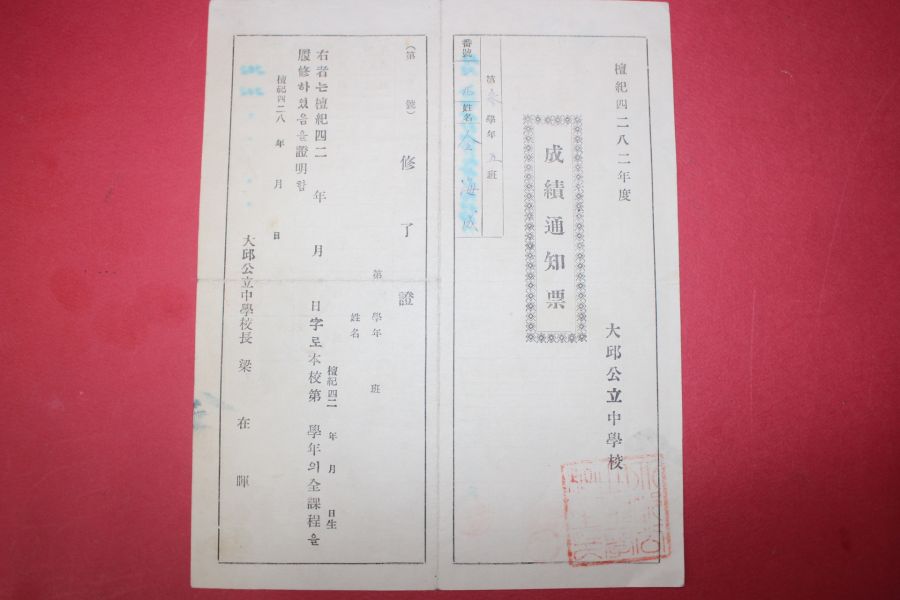 檀紀四二八二年度
成績通知票
大邱公立中學校
第 參 學年 五 班
番號
姓名 金海成
(第 號)
修了證
第 學年 班
姓名
檀紀四二 年 月 日生
右者는檀紀四二 年 月 日字로本校第 學年의全課程을
履修하였음을證明함
檀紀四二八 年 月 日
大邱公立中學校長 梁在暉